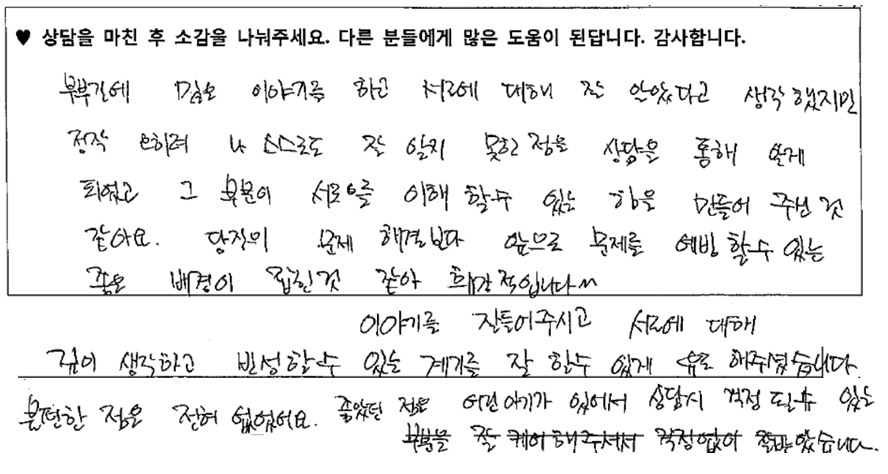 ♥ 상담을 마친 후 소감을 나눠주세요. 다른 분들에게 많은 도움이 된답니다. 감사합니다.
부부간에 많은 이야기를 하고 서로에 대해 잘 안았다고 생각했지만
정작 오히려 나 스스로도 잘 알지 못한 점을 상담을 통해 알게
되었고 그 부분이 서로를 이해 할수 있는 힘을 만들어 주신 것
같아요. 당장의 문제 해결보다 앞으로 문제를 예방 할수 있는
좋은 배경이 된것 같아 희망적입니다^^
이야기를 잘들어주시고 서로에 대해
깊이 생각하고 반성할수 있는 계기를 잘 할수 있게 유도 해주셨습니다.
불편한 점은 전혀 없었어요. 좋았던 점은 어린아기가 있어서 상담시 걱정 될수 있는
부분을 잘 케어해주셔서 걱정없이 잘받았습니다.